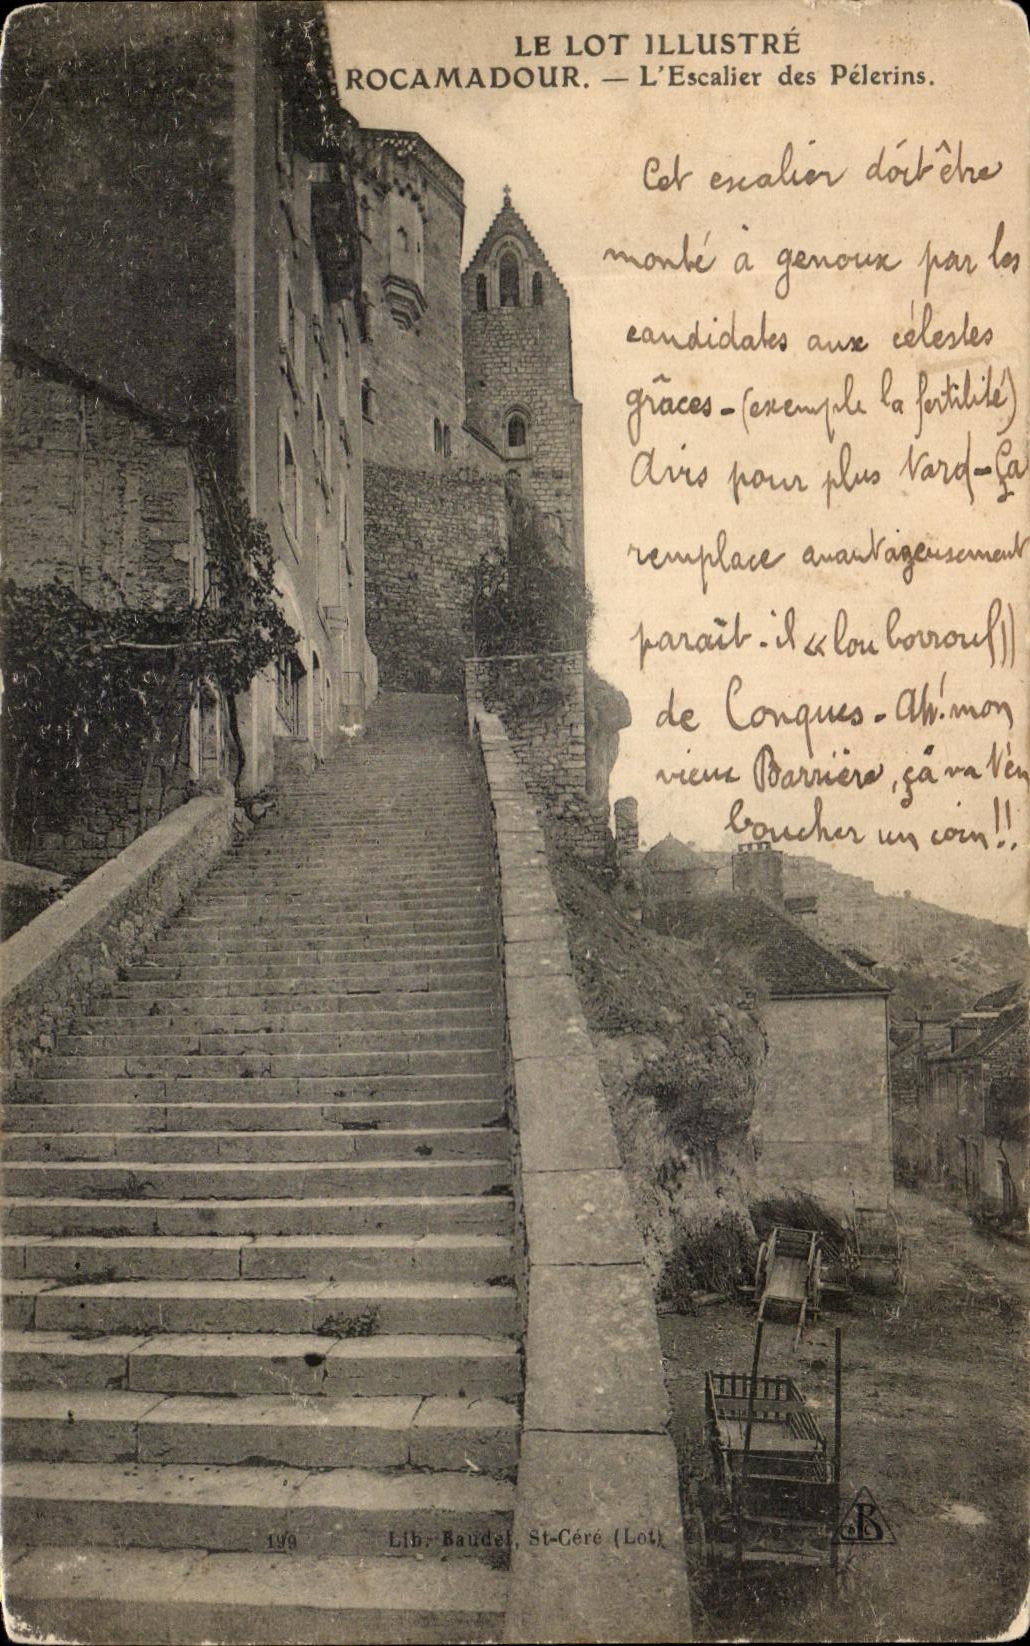 LE LOT ILLUSTRÉ
ROCAMADOUR. — L'Escalier des Pélerins.
Cet escalier doit être
monté à genoux par les
candidates aux célestes
grâces - (exemple la fertilité)
Avis pour plus tard - ça
remplace avantageusement
paraît-il « lou borroul »
de Conques - Ah! mon
vieux Barrière, çà va t'en
boucher un coin!!
199 Lib. Baudel, St-Céré (Lot)
B